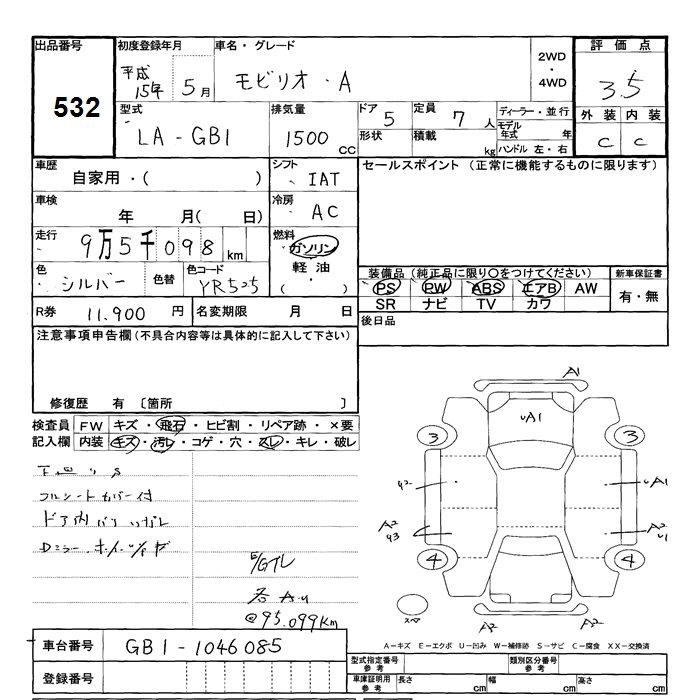 出品番号 初度登録年月 車名・グレード 評価点
532
平成 15年 5月
モビリオ・A
2WD
・
4WD
3.5
型式 排気量 ドア 定員 ディーラー・並行
LA-GB1 1500 CC
5 7人
モデル年式 年
形状 積載 kg ハンドル 左・右
外装 内装
C C
車歴 シフト セールスポイント (正常に機能するものに限ります)
自家用・( ) IAT
車検 冷房
年 月( 日) AC
走行 燃料
9万5千098km ガソリン
軽油
・
( )
色 色替 色コード
シルバー YR525
装備品 (純正品に限り○をつけてください) 新車保証書
PS PW ABS エアB AW 有・無
SR ナビ TV カワ
R券 11.900 円 名変期限 月 日
後日品
注意事項申告欄(不具合内容等は具体的に記入して下さい)
修復歴 有 〔箇所 〕
検査員 FW キズ・飛石・ヒビ割・リペア跡・×要
記入欄 内装 キズ・汚レ・コゲ・穴・スレ・キレ・破レ
フルシートカバー付
E/G
@95.099Km
A1
UA1
3 3
UA1
A2
A2
U1
4 4
A2 A2
A-キズ E-エクボ U-凹み W-補修跡 S-サビ C-腐食 XX-交換済
車台番号 GB1-1046085
登録番号
型式指定番号 参考 類別区分番号 参考
車庫証明用 参考 長さ cm 幅 cm 高さ cm